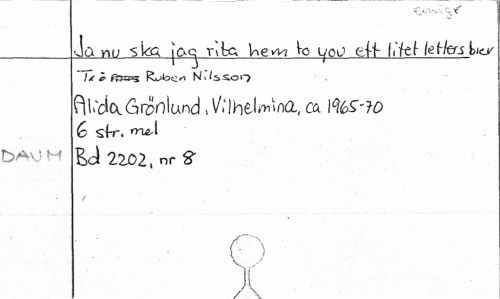 emigr
Ja nu ska jag rita hem to you ett litet letters brev
Ruben Nilsson
Alida Grönlund, Vilhelmina, ca 1965-70
6 str. mel
DAUM Bd 2202, nr 8